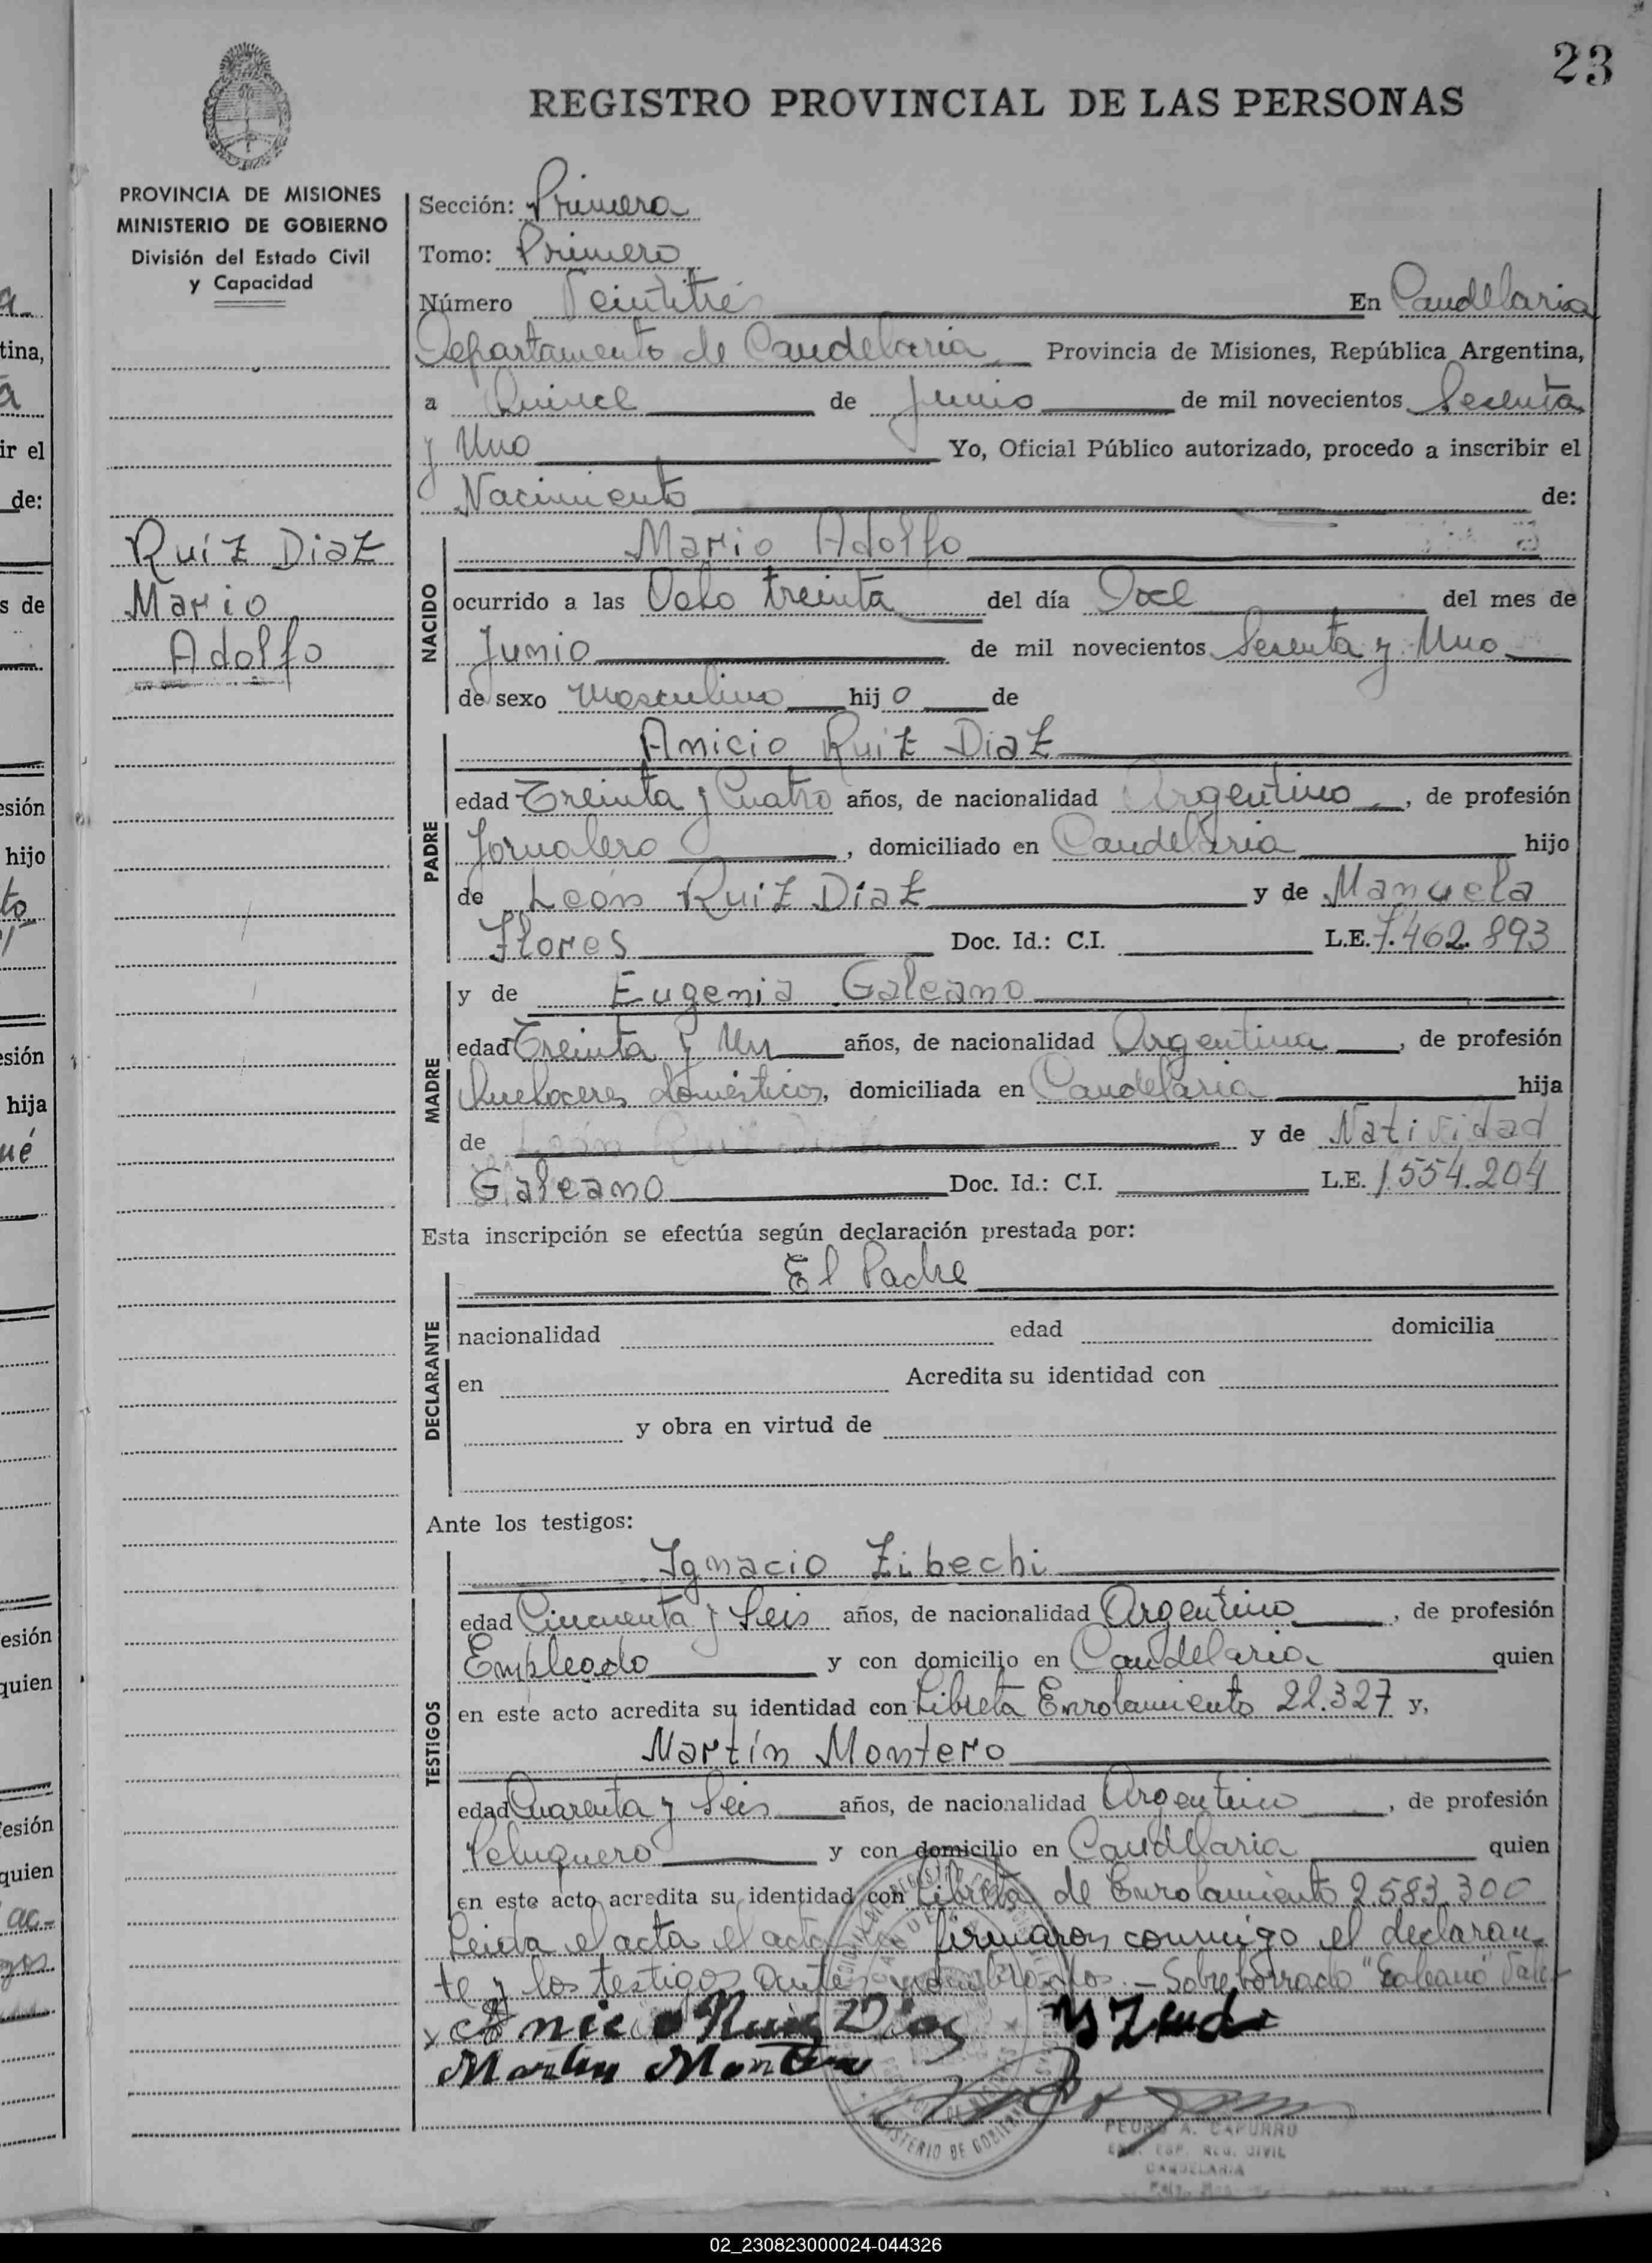 23
REGISTRO PROVINCIAL DE LAS PERSONAS
PROVINCIA DE MISIONES
MINISTERIO DE GOBIERNO
División del Estado Civil
y Capacidad
Ruiz Diaz
Mario
Adolfo
Sección: Primera
Tomo: Primero
Número Veintitrés En Candelaria
Departamento de Candelaria Provincia de Misiones, República Argentina,
a Quince de Junio de mil novecientos Sesenta
y Uno Yo, Oficial Público autorizado, procedo a inscribir el
Nacimiento de:
NACIDO
Mario Adolfo
ocurrido a las Ocho treinta del día Doce del mes de
Junio de mil novecientos Sesenta y Uno
de sexo Masculino hijo de
PADRE
Anicio Ruiz Diaz
edad Treinta y Cuatro años, de nacionalidad Argentino, de profesión
Jornalero, domiciliado en Candelaria hijo
de León Ruiz Diaz y de Manuela
Flores Doc. Id.: C.I. L.E. 7.462.893
MADRE
y de Eugenia Galeano
edad Treinta y Un años, de nacionalidad Argentina, de profesión
Quehaceres domésticos, domiciliada en Candelaria hija
de y de Natividad
Galeano Doc. Id.: C.I. L.E. 1.554.204
Esta inscripción se efectúa según declaración prestada por:
El Padre
DECLARANTE
nacionalidad edad domicilia
en Acredita su identidad con
y obra en virtud de
Ante los testigos:
TESTIGOS
Ignacio Zibechi
edad Cincuenta y Seis años, de nacionalidad Argentino, de profesión
Empleado y con domicilio en Candelaria quien
en este acto acredita su identidad con Libreta Enrolamiento 22.327 y,
Martín Montero
edad Cuarenta y Seis años, de nacionalidad Argentino, de profesión
Peluquero y con domicilio en Candelaria quien
en este acto acredita su identidad con Libreta de Enrolamiento 2.583.300
Leida el acta el acta firmaron conmigo el declaran-
te y los testigos antes nombrados. - Sobreborrado "Galeano" Vale-
x Anicio Ruiz Diaz
Martin Montero
MINISTERIO DE GOBIERNO
PEDRO A. CAPURRO
ENC. ESP. REG. CIVIL
CANDELARIA
02_230823000024-044326